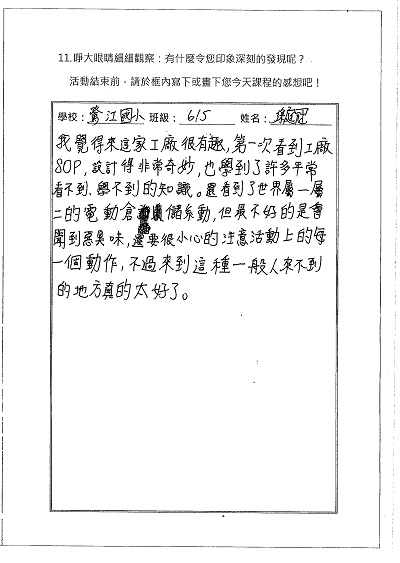 11.睜大眼睛細細觀察：有什麼令您印象深刻的發現呢？
活動結束前，請於框內寫下或畫下您今天課程的感想吧！
學校：鷺江國小 班級： 615 姓名：
我覺得來這家工廠很有趣，第一次看到工廠
SOP，設計得非常奇妙，也學到了許多平常
看不到、學不到的知識。還看到了世界屬一屬
二的電動倉儲系動，但最不好的是會
聞到惡臭味，還要很小心的注意活動上的每
一個動作，不過來到這種一般人來不到
的地方真的太好了。